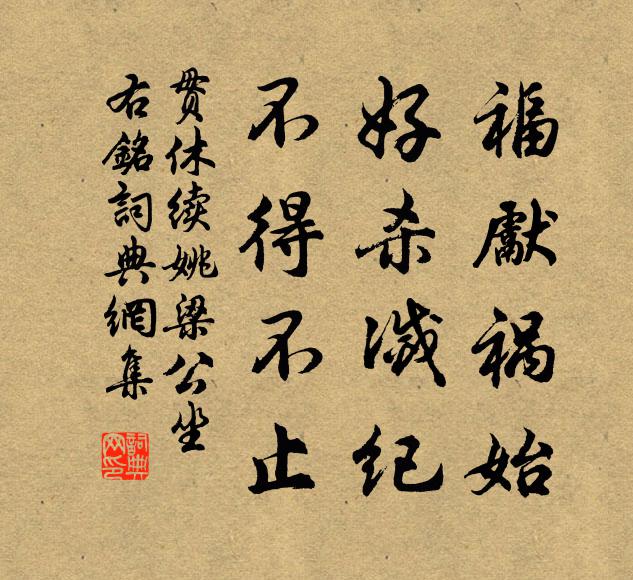 福獻祸始
好杀減纪
不得不止
贯休续姚梁公坐
右銘詞典網集
詞典网印